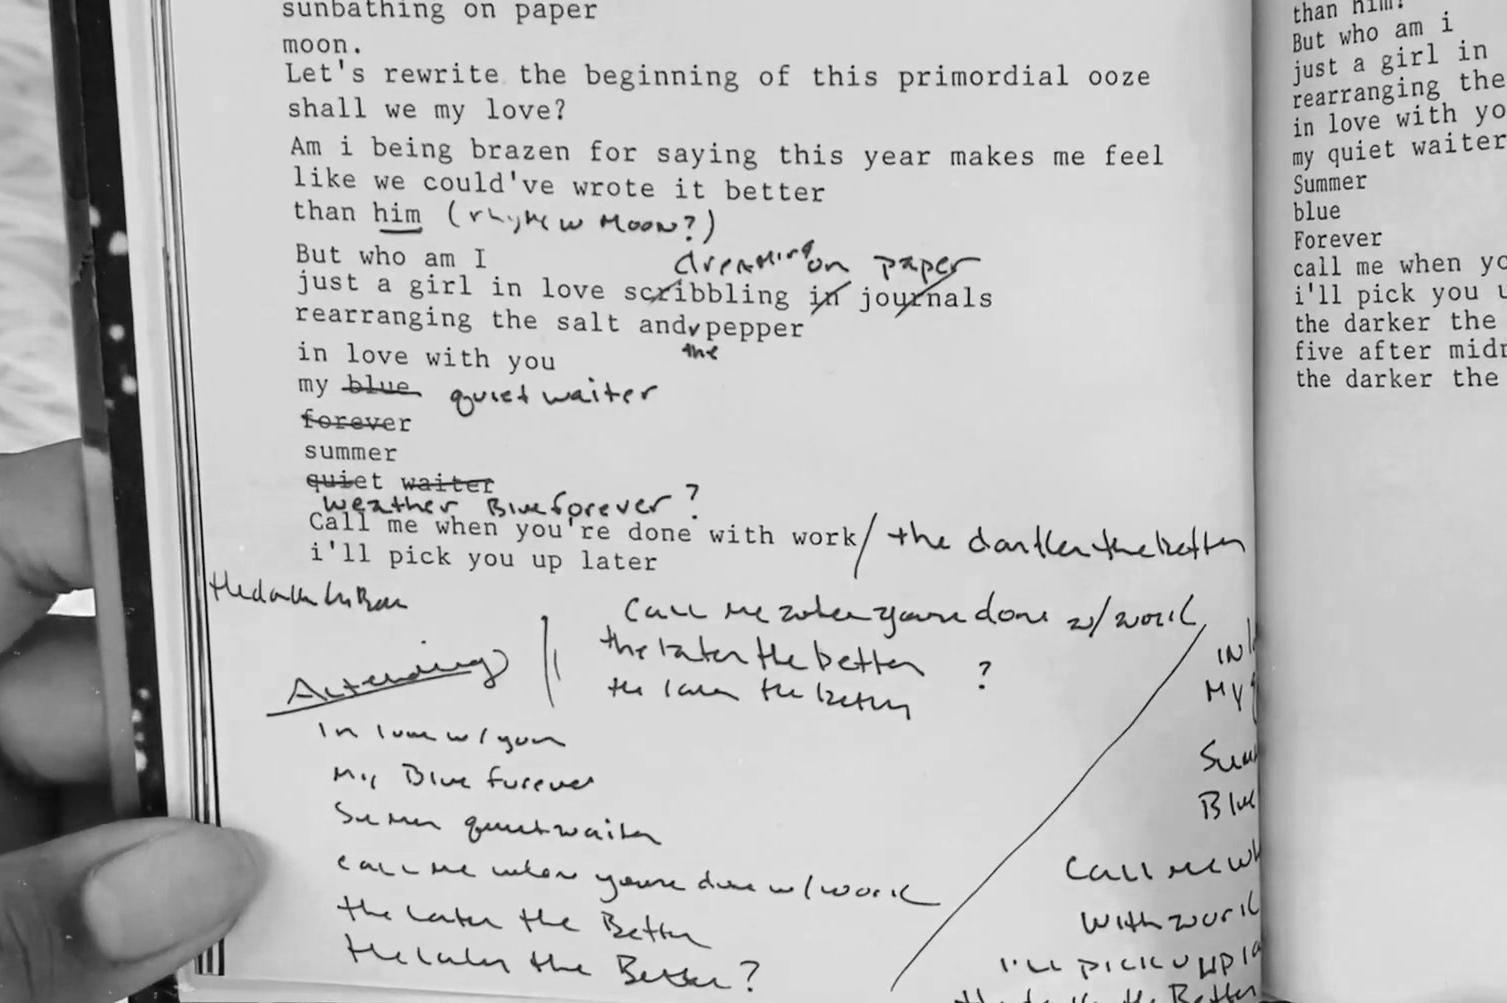 sunbathing on paper
moon.
Let's rewrite the beginning of this primordial ooze
shall we my love?
Am i being brazen for saying this year makes me feel
like we could've wrote it better
than him (rhyme w moon?)
But who am I
dreaming on paper
just a girl in love scribbling in journals
rearranging the salt and pepper
the
in love with you
my blue quiet waiter
forever
summer
quiet waiter
weather Blue forever?
Call me when you're done with work/ the darker the better
i'll pick you up later
the darker the
Call me when youre done w/ work
the later the better ?
the later the better
In love w/ you
My Blue forever
Summer quiet waiter
call me when youre done w/ work
the later the Better
the later the Better?
IN
My
Sum
Blue
Call me wh
with work
I'll pick u up la
the Better
than him.
But who am i
just a girl in
rearranging the
in love with yo
my quiet waiter
Summer
blue
Forever
call me when yo
i'll pick you u
the darker the
five after midn
the darker the